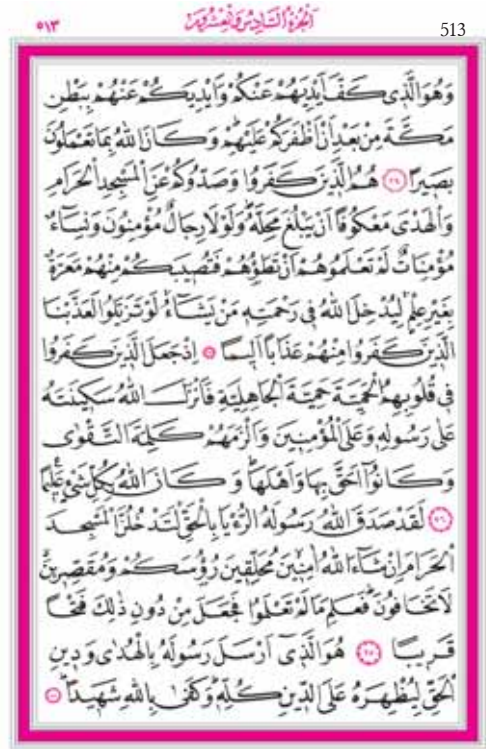 ٥١٣ اَلْجُزْءُ السَّادِسُ وَالْعِشْرُونَ 513
وَهُوَ الَّذِى كَفَّ اَيْدِيَهُمْ عَنْكُمْ وَاَيْدِيَكُمْ عَنْهُمْ بِبَطْنِ
مَكَّةَ مِنْ بَعْدِ اَنْ اَظْفَرَكُمْ عَلَيْهِمْ وَكَانَ اللّٰهُ بِمَا تَعْمَلُونَ
بَصِيرًا ﴿٢٤﴾ هُمُ الَّذِينَ كَفَرُوا وَصَدُّوكُمْ عَنِ الْمَسْجِدِ الْحَرَامِ
وَالْهَدْىَ مَعْكُوفًا اَنْ يَبْلُغَ مَحِلَّهُ وَلَوْلَا رِجَالٌ مُؤْمِنُونَ وَنِسَاءٌ
مُؤْمِنَاتٌ لَمْ تَعْلَمُوهُمْ اَنْ تَطَؤُهُمْ فَتُصِيبَكُمْ مِنْهُمْ مَعَرَّةٌ
بِغَيْرِ عِلْمٍ لِيُدْخِلَ اللّٰهُ فِى رَحْمَتِهِ مَنْ يَشَاءُ لَوْ تَزَيَّلُوا لَعَذَّبْنَا
الَّذِينَ كَفَرُوا مِنْهُمْ عَذَابًا اَلِيمًا ﴿٢٥﴾ اِذْ جَعَلَ الَّذِينَ كَفَرُوا
فِى قُلُوبِهِمُ الْحَمِيَّةَ حَمِيَّةَ الْجَاهِلِيَّةِ فَاَنْزَلَ اللّٰهُ سَكِينَتَهُ
عَلٰى رَسُولِهِ وَعَلَى الْمُؤْمِنِينَ وَاَلْزَمَهُمْ كَلِمَةَ التَّقْوٰى
وَكَانُوا اَحَقَّ بِهَا وَاَهْلَهَا وَكَانَ اللّٰهُ بِكُلِّ شَىْءٍ عَلِيمًا
﴿٢٦﴾ لَقَدْ صَدَقَ اللّٰهُ رَسُولَهُ الرُّءْيَا بِالْحَقِّ لَتَدْخُلُنَّ الْمَسْجِدَ
الْحَرَامَ اِنْ شَاءَ اللّٰهُ اٰمِنِينَ مُحَلِّقِينَ رُؤُسَكُمْ وَمُقَصِّرِينَ
لَا تَخَافُونَ فَعَلِمَ مَا لَمْ تَعْلَمُوا فَجَعَلَ مِنْ دُونِ ذٰلِكَ فَتْحًا
قَرِيبًا ﴿٢٧﴾ هُوَ الَّذِى اَرْسَلَ رَسُولَهُ بِالْهُدٰى وَدِينِ
الْحَقِّ لِيُظْهِرَهُ عَلَى الدِّينِ كُلِّهِ وَكَفٰى بِاللّٰهِ شَهِيدًا ﴿٢٨﴾